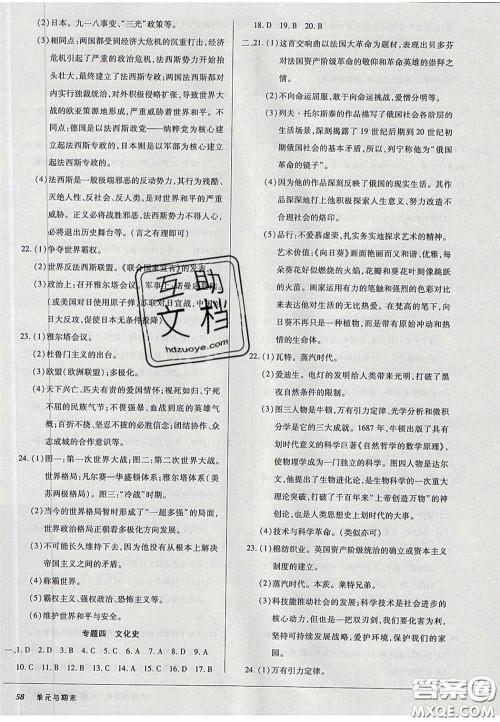 (2)日本。九一八事变、“三光”政策等。
(3)相同点:两国都受到经济大危机的沉重打击,经济
危机引起了严重的政治危机,法西斯势力开始抬
头壮大,最终建立了法西斯专政;两国法西斯都对
内实行独裁统治,对外积极侵略扩张,导致世界大
战的欧亚策源地形成,严重威胁着世界和平。不
同点:德国是以法西斯政党——纳粹党为核心建
立起法西斯专政的。日本则是以军部为核心建立
起法西斯专政的。
(4)法西斯是一股极端邪恶的反动势力,其行为残酷、
灭绝人性、反社会、反人类,对世界和平是一个严重
威胁。正义必将战胜邪恶,法西斯势力不得人心,
必将退出历史舞台等。(言之有理即可)
22. (1)争夺世界霸权。
(2)世界反法西斯联盟。《联合国家宣言》的发表。
(3)政治上:召开雅尔塔会议。军事上:诺曼底登陆。
(或美国对日使用原子弹,苏联对日宣战,中国大
反攻,使日本无条件投降)
23. (1)雅尔塔会议。
(2)杜鲁门主义的出台。
(3)欧盟(欧洲联盟);多极化。
(4)天下兴亡、匹夫有责的爱国情怀;视死如归、宁
死不屈的民族气节;不畏强暴、血战到底的英雄气
概;百折不挠、坚忍不拔的必胜信念;万众一心、众
志成城的合作意识等。
24. (1)图一:第一次世界大战。图二:第二次世界大战。
世界格局:凡尔赛—华盛顿体系;雅尔塔体系(美
苏两极格局)。图三:“冷战”时期。
(2)当今的世界格局暂时形成了“一超多强”的局面,
世界政治格局正朝着多极化方向发展。
(3)不可能长久维持下去,因为它没有从根本上解决帝
国主义之间的矛盾。
(4)称霸世界。
(5)霸权主义、强权政治、恐怖主义等。
(6)维护世界和平与安全。
专题四 文化史
一、1. D 2. C 3. C 4. D 5. B 6. D 7. C 8. D 9. A
10. C 11. A 12. C 13. D 14. C 15. A 16. C 17. A
18. D 19. B 20. B
二、21. (1)这首交响曲以法国大革命为题材,表现出贝多芬
对法国资产阶级革命的敬仰和革命英雄的崇拜之
情。
(2)不向命运屈服,敢于向命运挑战,爱憎分明。
(3)列夫·托尔斯泰的作品描写了俄国社会各阶层的
生活场景,深刻揭露了 19 世纪后期到 20 世纪初
期俄国社会的基本矛盾,所以,列宁称他为“俄国
革命的镜子”。
(4)因为他的作品深刻反映了俄国的现实生活,表达
了对下层人民悲惨生活的同情,作者本人决心与不
合理社会的熔印。
(5)品质:不爱慕虚荣、扎实务实地探求艺术的精神。
艺术价值:《向日葵》画面艳丽,和谐优雅,每一
朵葵花好似燃烧的火焰,花瓣和葵花叶则像跳跃
的火苗,整幅画犹如燃遍画布的火焰,表现出作者
狂热般的生命激情,每朵花都如强烈的阳光,体现
作者对生活的无比热爱。在梵高的笔下,向日
葵不再只是一种植物,而是带有原始冲动和热情
的生命体。
22. (1)瓦特。蒸汽时代。
(2)爱迪生。电灯的发明给人类带来光明,打破了黑
夜自然条件的限制。
(3)图三人物是牛顿,万有引力定律、牛顿力学是其最
伟大的三大成就。1687 年,牛顿出版了具有
划时代意义的科学巨著《自然哲学的数学原理》,
使物理学成为一门独立的科学。图四人物达尔
文,提出生物进化论,是生物科学的一次重大
理论突破,打破了千百年来“上帝创造万物”的神
创论,也是人类思想史上划时代的大事。
(4)技术与科学革命。(类似亦可)
23. (1)棉纺织业。英国资产阶级统治的确立或资本主义
制度的建立。
(2)蒸汽时代。本茨。莱特兄弟。
(3)科技能推动社会的发展;科技是社会进步的
核心动力之一,我们要努力学习科学文化知识;
爱护、保护环境,我们要化害为利,让科学更好
地为人类服务。
24. (1)万有引力定律。
58 单元与期末
互助文档
hdzuoye.com
答案圈
MXQE.COM